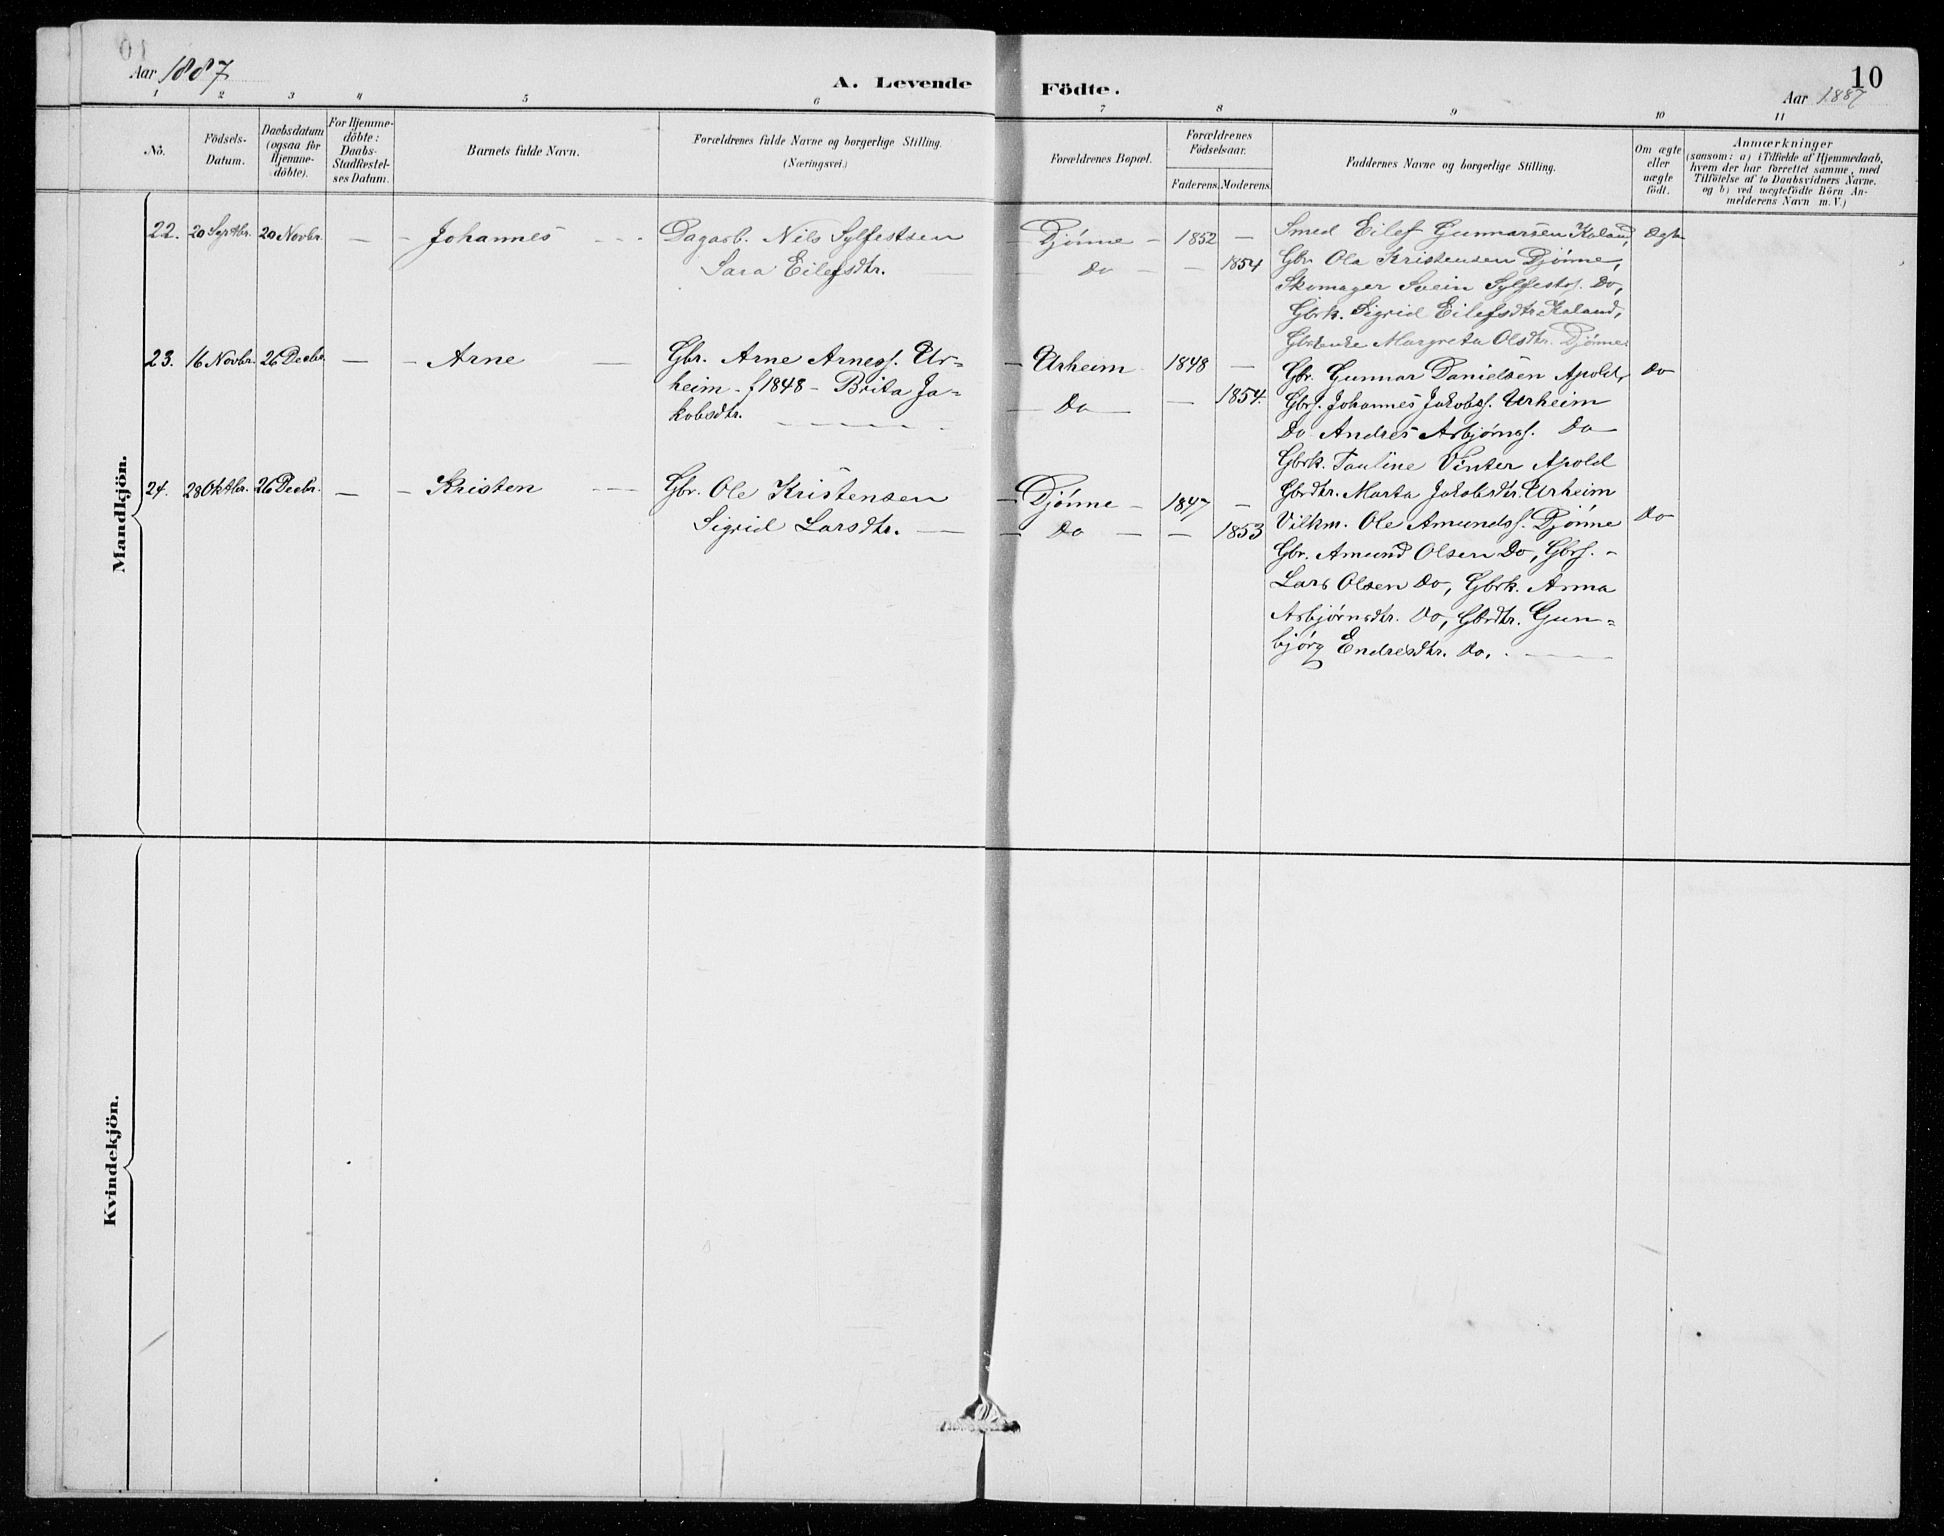 Aar 1887
A. Levende Födte.
10
Aar 1887
1 2 3 4 5 6 7 8 9 10 11
No.
Födsels-Datum.
Daabsdatum (ogsaa for Hjemme-döbte).
For Hjemme-döbte: Daabs-Stadfæstel-ses Datum.
Barnets fulde Navn.
Forældrenes fulde Navne og borgerlige Stilling.
(Næringsvei.)
Forældrenes Bopæl.
Forældrenes Födselsaar.
Faderens. Moderens.
Faddernes Navne og borgerlige Stilling.
Om ægte eller uægte födt.
Anmærkninger
(saasom: a) i Tilfælde af Hjemmedaab,
hvem der har forrettet samme, med
Tilföielse af to Daabsvidners Navne.
og b) ved uægtefödte Börn An-
melderens Navn m. V.)
Mandkjön.
22. 20 Septbr. 20 Novbr. — - Johannes - - - Dagarb. Nils Sylfestsen — Djønne — 1852 — Smed Eilef Gunnarsen Kaland, Ægte
Sara Eilefsdtr. — Do — — 1854 Gbr Ola Kristensen Djønne,
Skomager Svein Sylfests. Do,
Gbrk. Sigrid Eilefsdtr. Kaland,
Margreta Olsdtr. Djønne.
23. 16 Novbr. 26 Decbr. — - Arne — Gbr. Arne Arness. Ur= - Urheim 1848 — Gbr. Gunnar Danielsen Apold, Do
heim - f 1848 - Brita Ja= — Do — — 1854. Gbrs. Johannes Jakobss. Urheim
kobsdtr. Do Andres Asbjørnss. Do
Gbrk. Pauline Vinter Apold
Gbrdtr. Marta Jakobsdtr. Urheim
24. 28 Oktbr. 26 Decbr. — - Kristen - - - Gbr. Ole Kristensen — Djønne - 1847 — Vilkm. Ole Amundss. Djønne Do
Sigrid Larsdtr. — — Do — — 1853 Gbr. Amund Olsen Do, Gbrs. -
Lars Olsen Do, Gbrk. Anna
Asbjørnsdtr. Do, Gbrdtr. Gun=
bjørg Endresdtr. Do.
Kvindekjön.